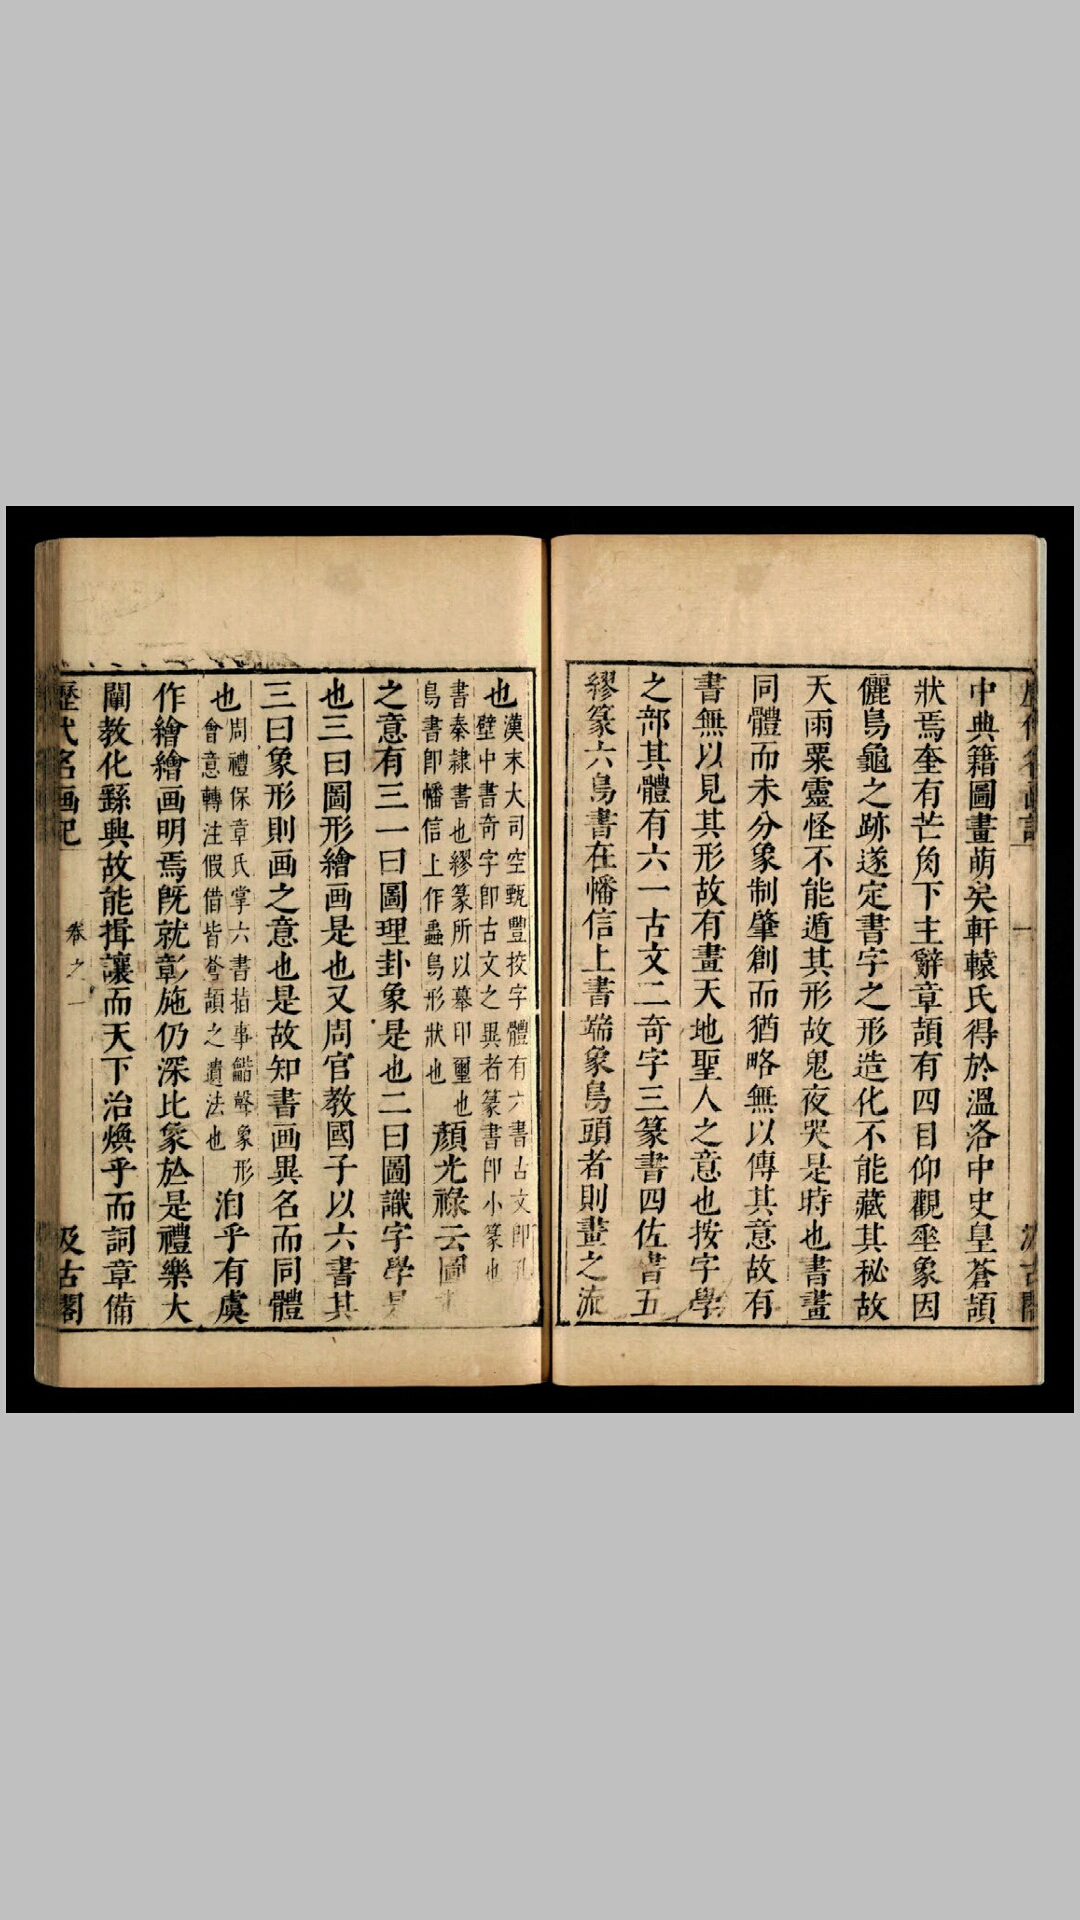 中典籍圖畫萌矣軒轅氏得於溫洛中史皇蒼頡
狀焉奎有芒角下主辭章頡有四目仰觀𡍮象因
儷鳥龜之跡遂定書字之形造化不能藏其秘故
天雨粟靈怪不能遁其形故鬼夜哭是時也書畫
同體而未分象制肇創而猶略無以傳其意故有
書無以見其形故有畫天地聖人之意也按字學
之部其體有六一古文二奇字三篆書四佐書五
繆篆六鳥書在幡信上書端象鳥頭者則畫之流
也漢末大司空甄豐挍字體有六書古文即孔
壁中書奇字即古文之異者篆書即小篆也
書秦隷書也繆篆所以摹印璽也
鳥書即幡信上作蟲鳥形狀也顏光祿云圖
之意有三一曰圖理卦象是也二曰圖識字學是
也三曰圖形繪画是也又周官教國子以六書其
三曰象形則画之意也是故知書画異名而同體
也周禮保章氏掌六書指事諧聲象形
會意轉注假借皆蒼頡之遺法也洎乎有虞
作繪繪画明焉旣就彰施仍深比象於是禮樂大
闡教化繇興故能揖讓而天下治煥乎而詞章備
歷代名画記 卷之一 汲古閣